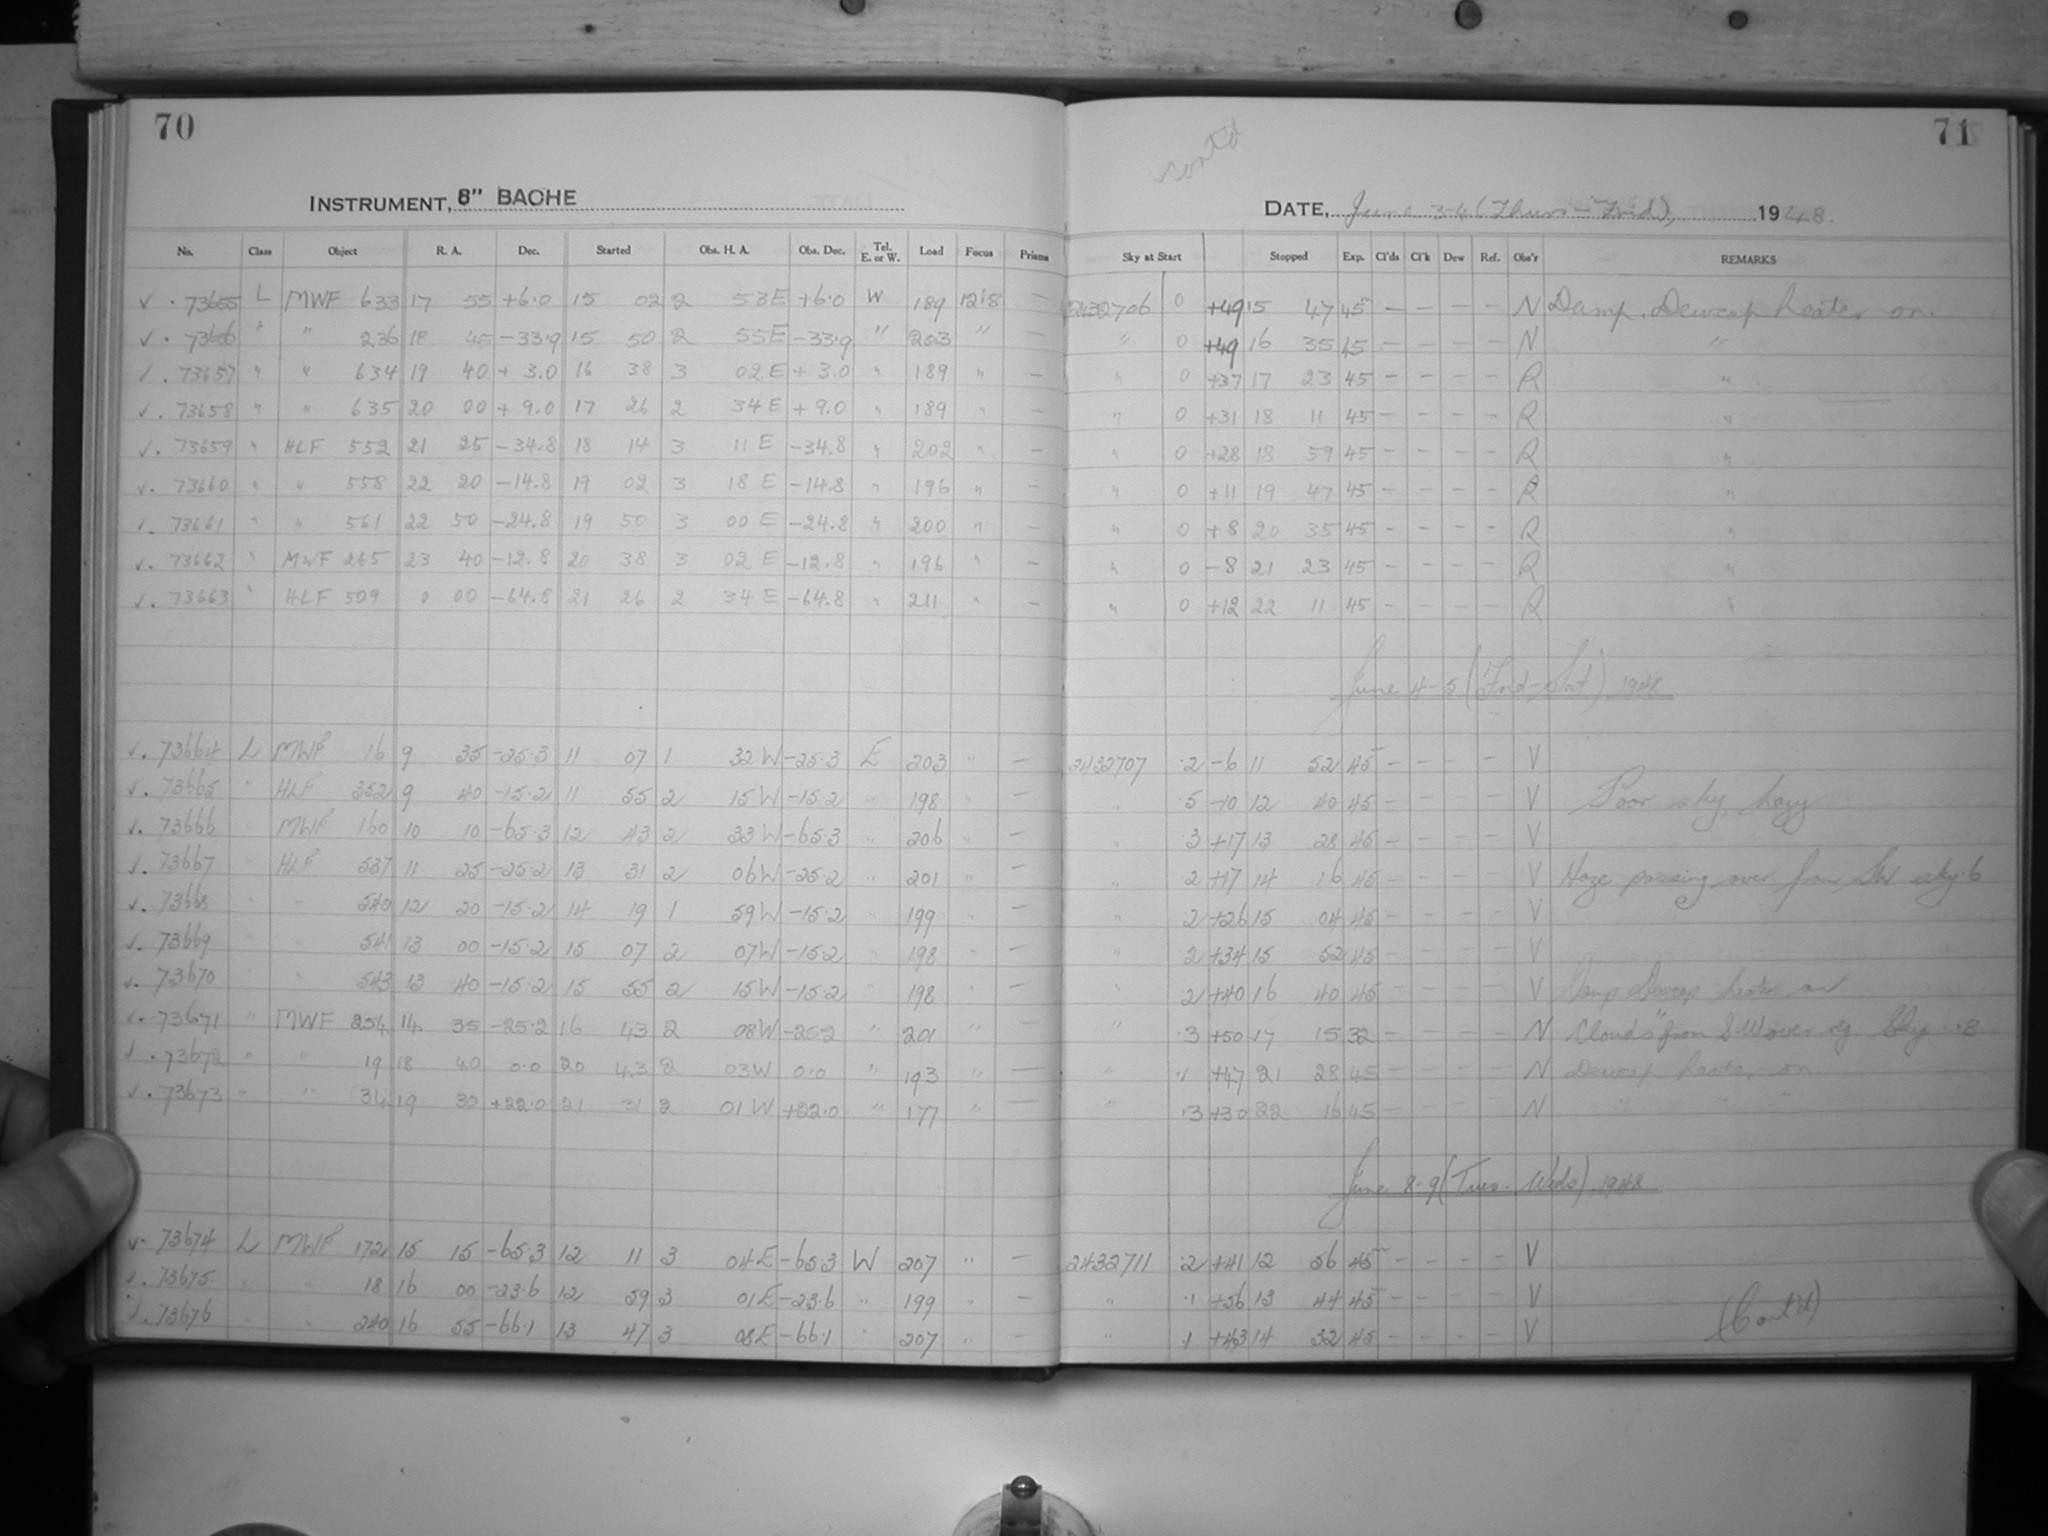 70
71
cont'd
INSTRUMENT, 8" BACHE
DATE, June 3-4 (Thurs-Frid), 1948.
No. Class Object R. A. Dec. Started Obs. H. A. Obs. Dec. Tel. E. or W. Load Focus Prisms Sky at Start Stopped Exp. Cl'ds Cl'k Dew Ref. Obs'r REMARKS
✓ . 73655 L MWF 633 17 55 +6.0 15 02 2 53E +6.0 W 189 12.8 — 2432706 0 +49 15 47 45 — — — — N Damp. Dewcap heater on.
✓ . 73656 " " 236 18 45 -33.9 15 50 2 55E -33.9 " 203 " — " 0 +49 16 35 45 — — — — N "
✓ . 73657 " " 634 19 40 + 3.0 16 38 3 02 E + 3.0 " 189 " — " 0 +37 17 23 45 — — — — R "
✓ . 73658 " " 635 20 00 + 9.0 17 26 2 34 E + 9.0 " 189 " — " 0 +31 18 11 45 — — — — R "
✓ . 73659 " HLF 552 21 25 -34.8 18 14 3 11 E -34.8 " 202 " — " 0 +28 18 59 45 — — — — R "
✓ . 73660 " " 558 22 20 -14.8 19 02 3 18 E -14.8 " 196 " — " 0 +11 19 47 45 — — — — R "
✓ . 73661 " " 561 22 50 -24.8 19 50 3 00 E -24.8 " 200 " — " 0 + 8 20 35 45 — — — — R "
✓ . 73662 " MWF 265 23 40 -12.8 20 38 3 02 E -12.8 " 196 " — " 0 - 8 21 23 45 — — — — R "
✓ . 73663 " HLF 509 0 00 -64.8 21 26 2 34 E -64.8 " 211 " — " 0 +12 22 11 45 — — — — R "
June 4-5 (Frid-Sat), 1948
✓ . 73664 L MWF 16 9 35 -25.3 11 07 1 32 W -25.3 E 203 " — 2432707 .2 -6 11 52 45 — — — — V
✓ . 73665 " HLF 352 9 40 -15.2 11 55 2 15W -15.2 " 198 " — " .5 -10 12 40 45 — — — — V Poor sky, hazy
✓ . 73666 " MWF 160 10 10 -65.3 12 43 2 33 W -65.3 " 206 " — " .3 +17 13 28 45 — — — — V
✓ . 73667 " HLF 537 11 25 -25.2 13 31 2 06W -25.2 " 201 " — " .2 +17 14 16 45 — — — — V Haze passing over from SW sky .6
✓ . 73668 " " 540 12 20 -15.2 14 19 1 59W -15.2 " 199 " — " .2 +26 15 04 45 — — — — V
✓ . 73669 " " 541 13 00 -15.2 15 07 2 07W -15.2 " 198 " — " .2 +34 15 52 45 — — — — V
✓ . 73670 " " 543 13 40 -15.2 15 55 2 15W -15.2 " 198 " — " .2 +40 16 40 45 — — — — V Damp Dewcap heater on
✓ . 73671 " MWF 254 14 35 -25.2 16 43 2 08W -25.2 " 201 " — " .3 +50 17 15 32 — — — — N Clouds from SW over reg. Sky .8
✓ . 73672 " " 19 18 40 0.0 20 43 2 03W 0.0 " 193 " — " .1 +47 21 28 45 — — — — N Dewcap heater on
✓ . 73673 " " 34 19 30 +22.0 21 31 2 01 W +22.0 " 177 " — " .3 +30 22 16 45 — — — — N " " "
June 8-9 (Tues-Weds), 1948
✓ . 73674 L MWF 172 15 15 -65.3 12 11 3 04 E -65.3 W 207 " — 2432711 .2 +41 12 56 45 — — — — V
✓ . 73675 " " 18 16 00 -23.6 12 59 3 01E -23.6 " 199 " — " .1 +56 13 44 45 — — — — V
✓ . 73676 " " 240 16 55 -66.1 13 47 3 08E -66.1 " 207 " — " .1 +43 14 32 45 — — — — V
(Cont'd)